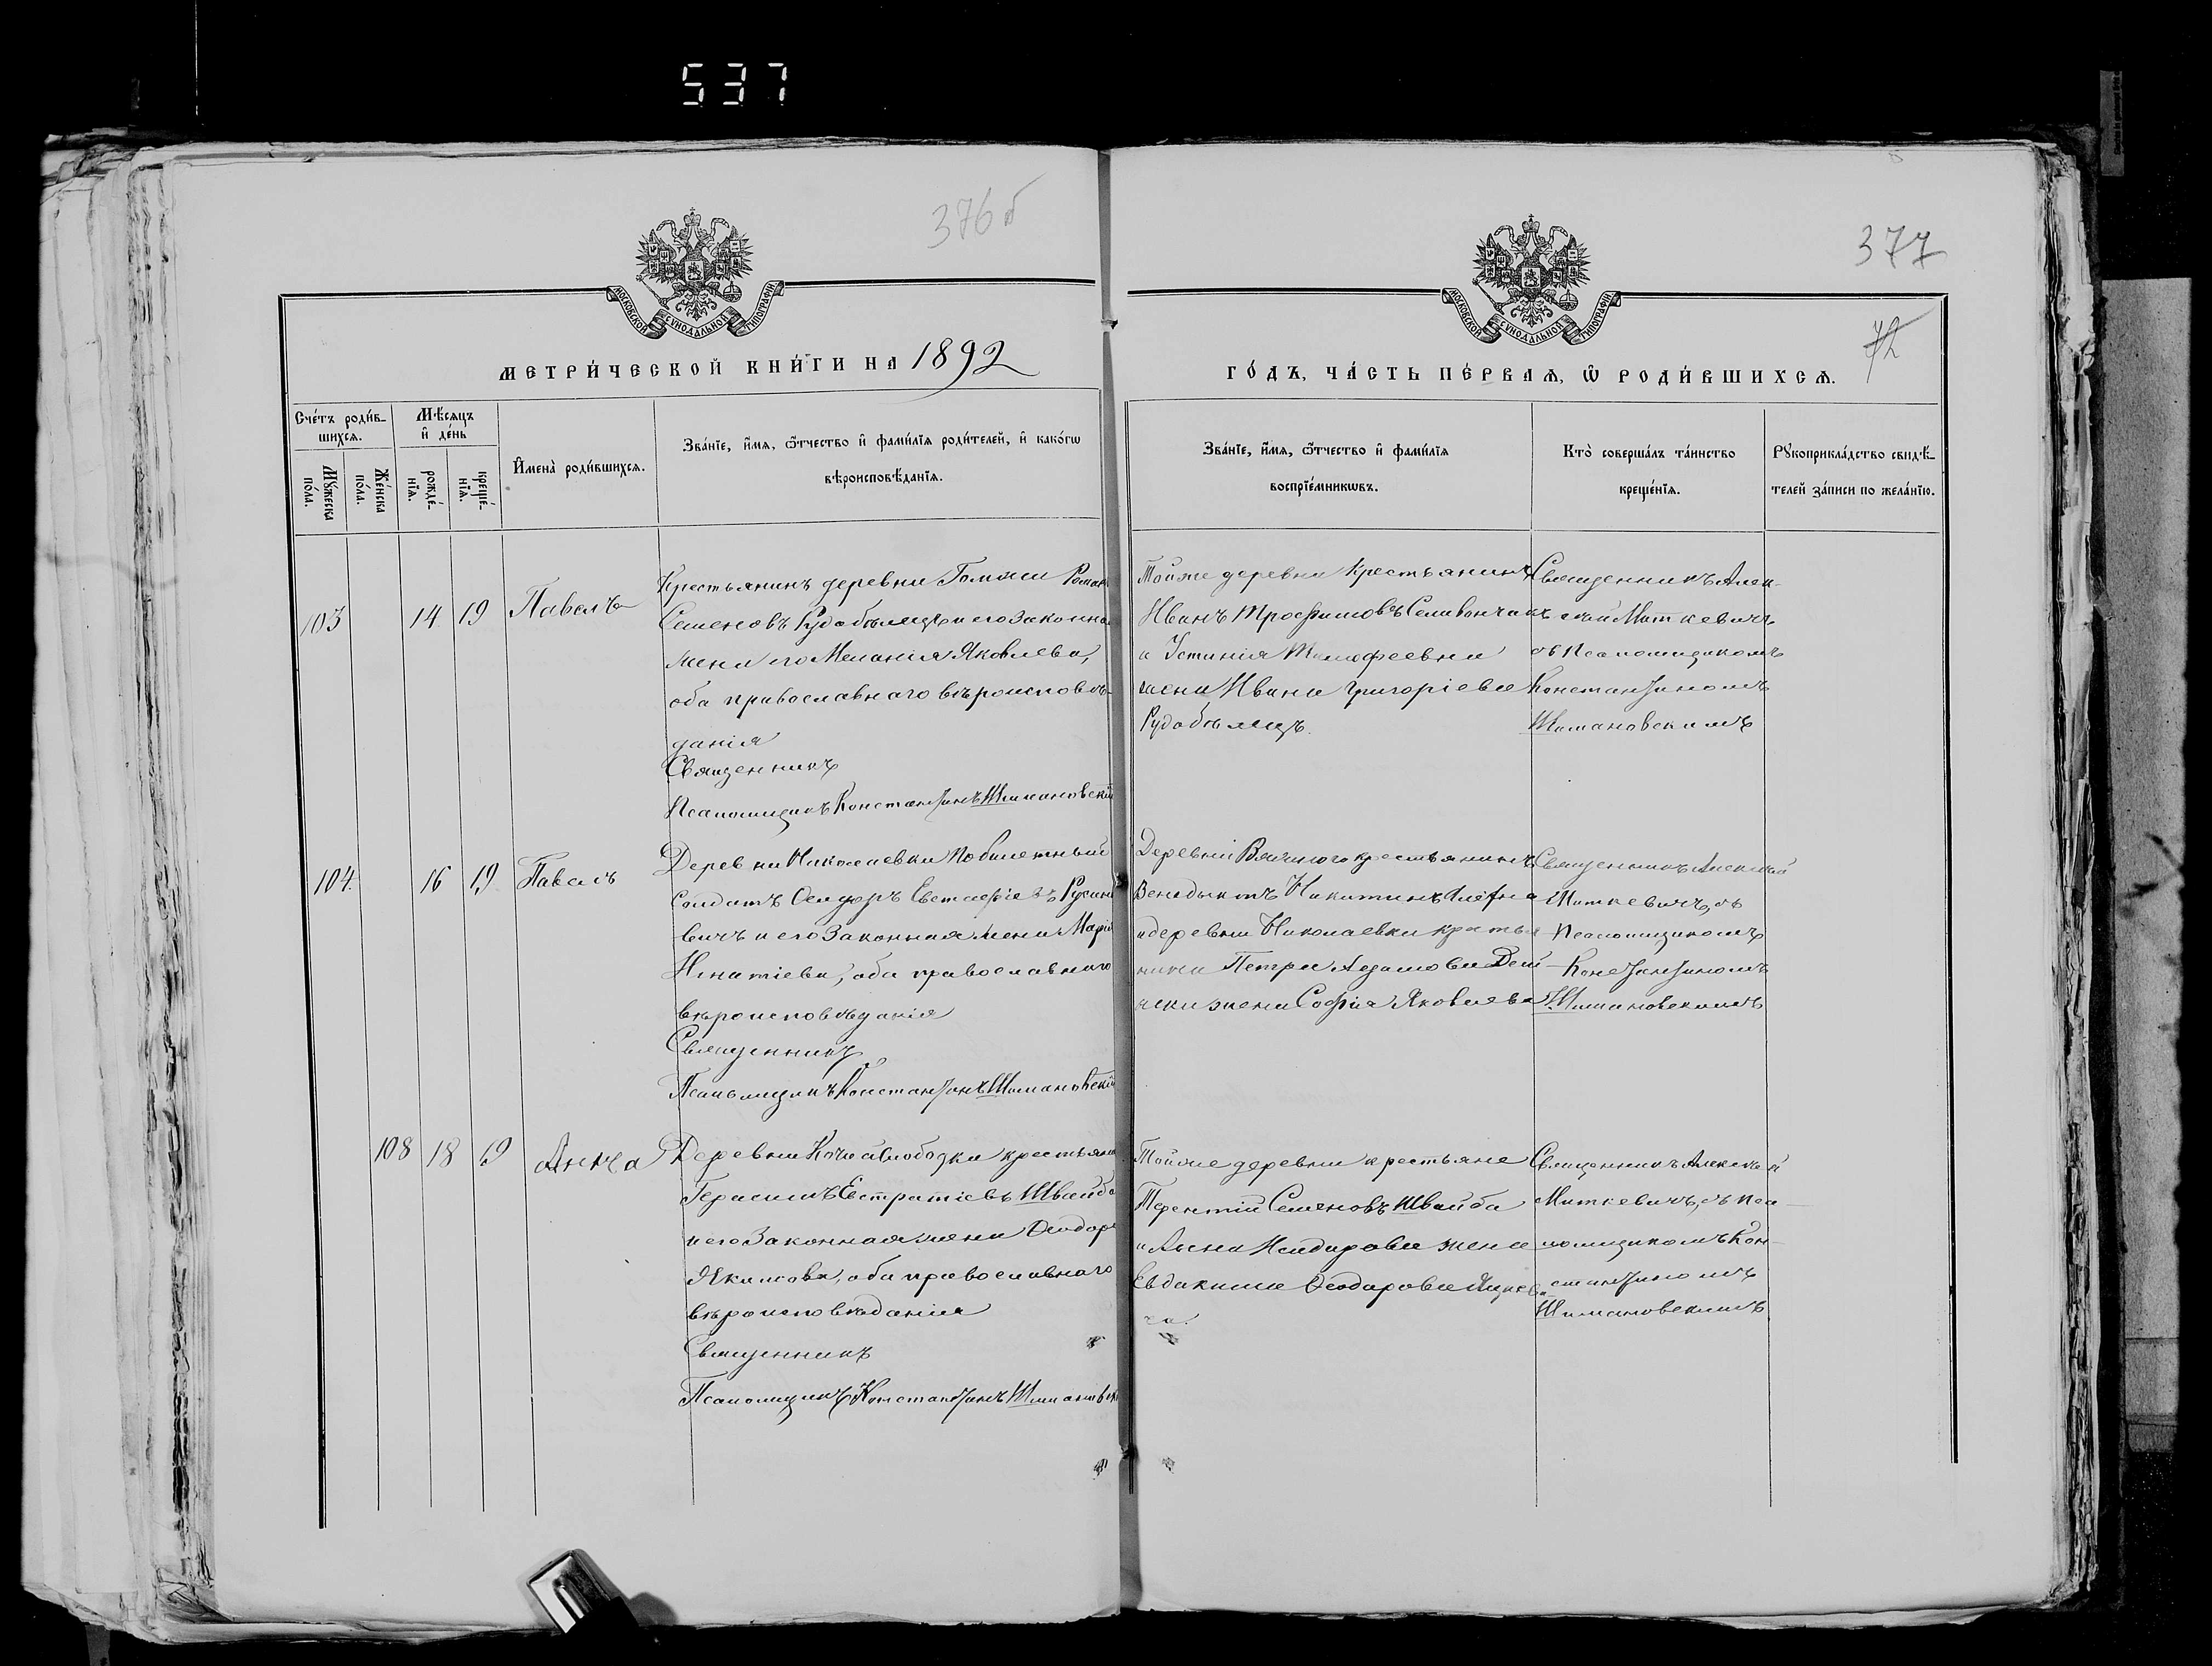 537
376б
377
72
МОСКОВСКОЙ СѴНОДАЛЬНОЙ ТИПОГРАФІИ
МОСКОВСКОЙ СѴНОДАЛЬНОЙ ТИПОГРАФІИ
МЕТРИ́ЧЕСКОЙ КНИ́ГИ НА 1892
ГО́ДЪ, ЧА́СТЬ ПЕ́РВАѦ, Ѡ РОДИ́ВШИХСѦ.
Сче́тъ роди́в-
шихсѧ.
Мѣ́сѧцъ
и҆ де́нь
Мꙋ́жеска
по́ла.
Же́нска
по́ла.
рожде́-
нїѧ.
креще́-
нїѧ.
И҆мена̀ роди́вшихсѧ.
Зва́нїе, и҆́мѧ, ѻ҆́тчество и҆ фами́лїѧ роди́телей, и҆ како́гѡ
вѣроисповѣ́данїѧ.
Зва́нїе, и҆́мѧ, ѻ҆́тчество и҆ фами́лїѧ
воспрїе́мникѡвъ.
Кто̀ соверша́лъ та́инство
креще́нїѧ.
Рꙋкоприкла́дство свидѣ́-
телей за́писи по жела́нїю.
103
14
19
Павелъ
Крестьянинъ деревни Роман
Семеновъ Рудобѣлецъ и его законна
жена его Меланія Яковлева,
оба православнаго вѣроисповѣ-
данія
Священникъ
Псаломщикъ Константинъ Шимановскій
Тойже деревни крестьянинъ
Иванъ Трофимовъ Селивончикъ
и Устинія Тимофеевна
жена Ивана Григоріева
Рудобѣлецъ.
Священникъ Алек-
сѣй Миткевичъ
съ Псаломщикомъ
Константиномъ
Шимановскимъ
104
16
19
Павелъ
Деревни Николаевки побилетный
солдатъ Ѳеодоръ Евстафіевъ Русино
вичъ и его законная жена Марія
Игнатіева, оба православнаго
вѣроисповѣданія
Священникъ
Псаломщикъ Константинъ Шимановскій
Деревни крестьянинъ
Венедыктъ Никитинъ
и деревни Николаевки крестья
нина Петра Адамова Дей
жена Софія Яковлева
Священникъ Алексѣй
Миткевичъ, съ
Псаломщикомъ
Константиномъ
Шимановскимъ
108
18
19
Анна
Деревни Слободки крестьяни
Герасимъ Евстратіевъ Швайба
и его законная жена Ѳеодор
Якимова, оба православнаго
вѣроисповѣданія
Священникъ
Псаломщикъ Константинъ Шимановск
Тойже деревни крестьяне
Терентій Семеновъ Швайба
и жена
Евдокима Ѳеодорова
Священникъ Алексѣй
Миткевичъ, съ Пса-
ломщикомъ Кон-
стантиномъ
Шимановскимъ